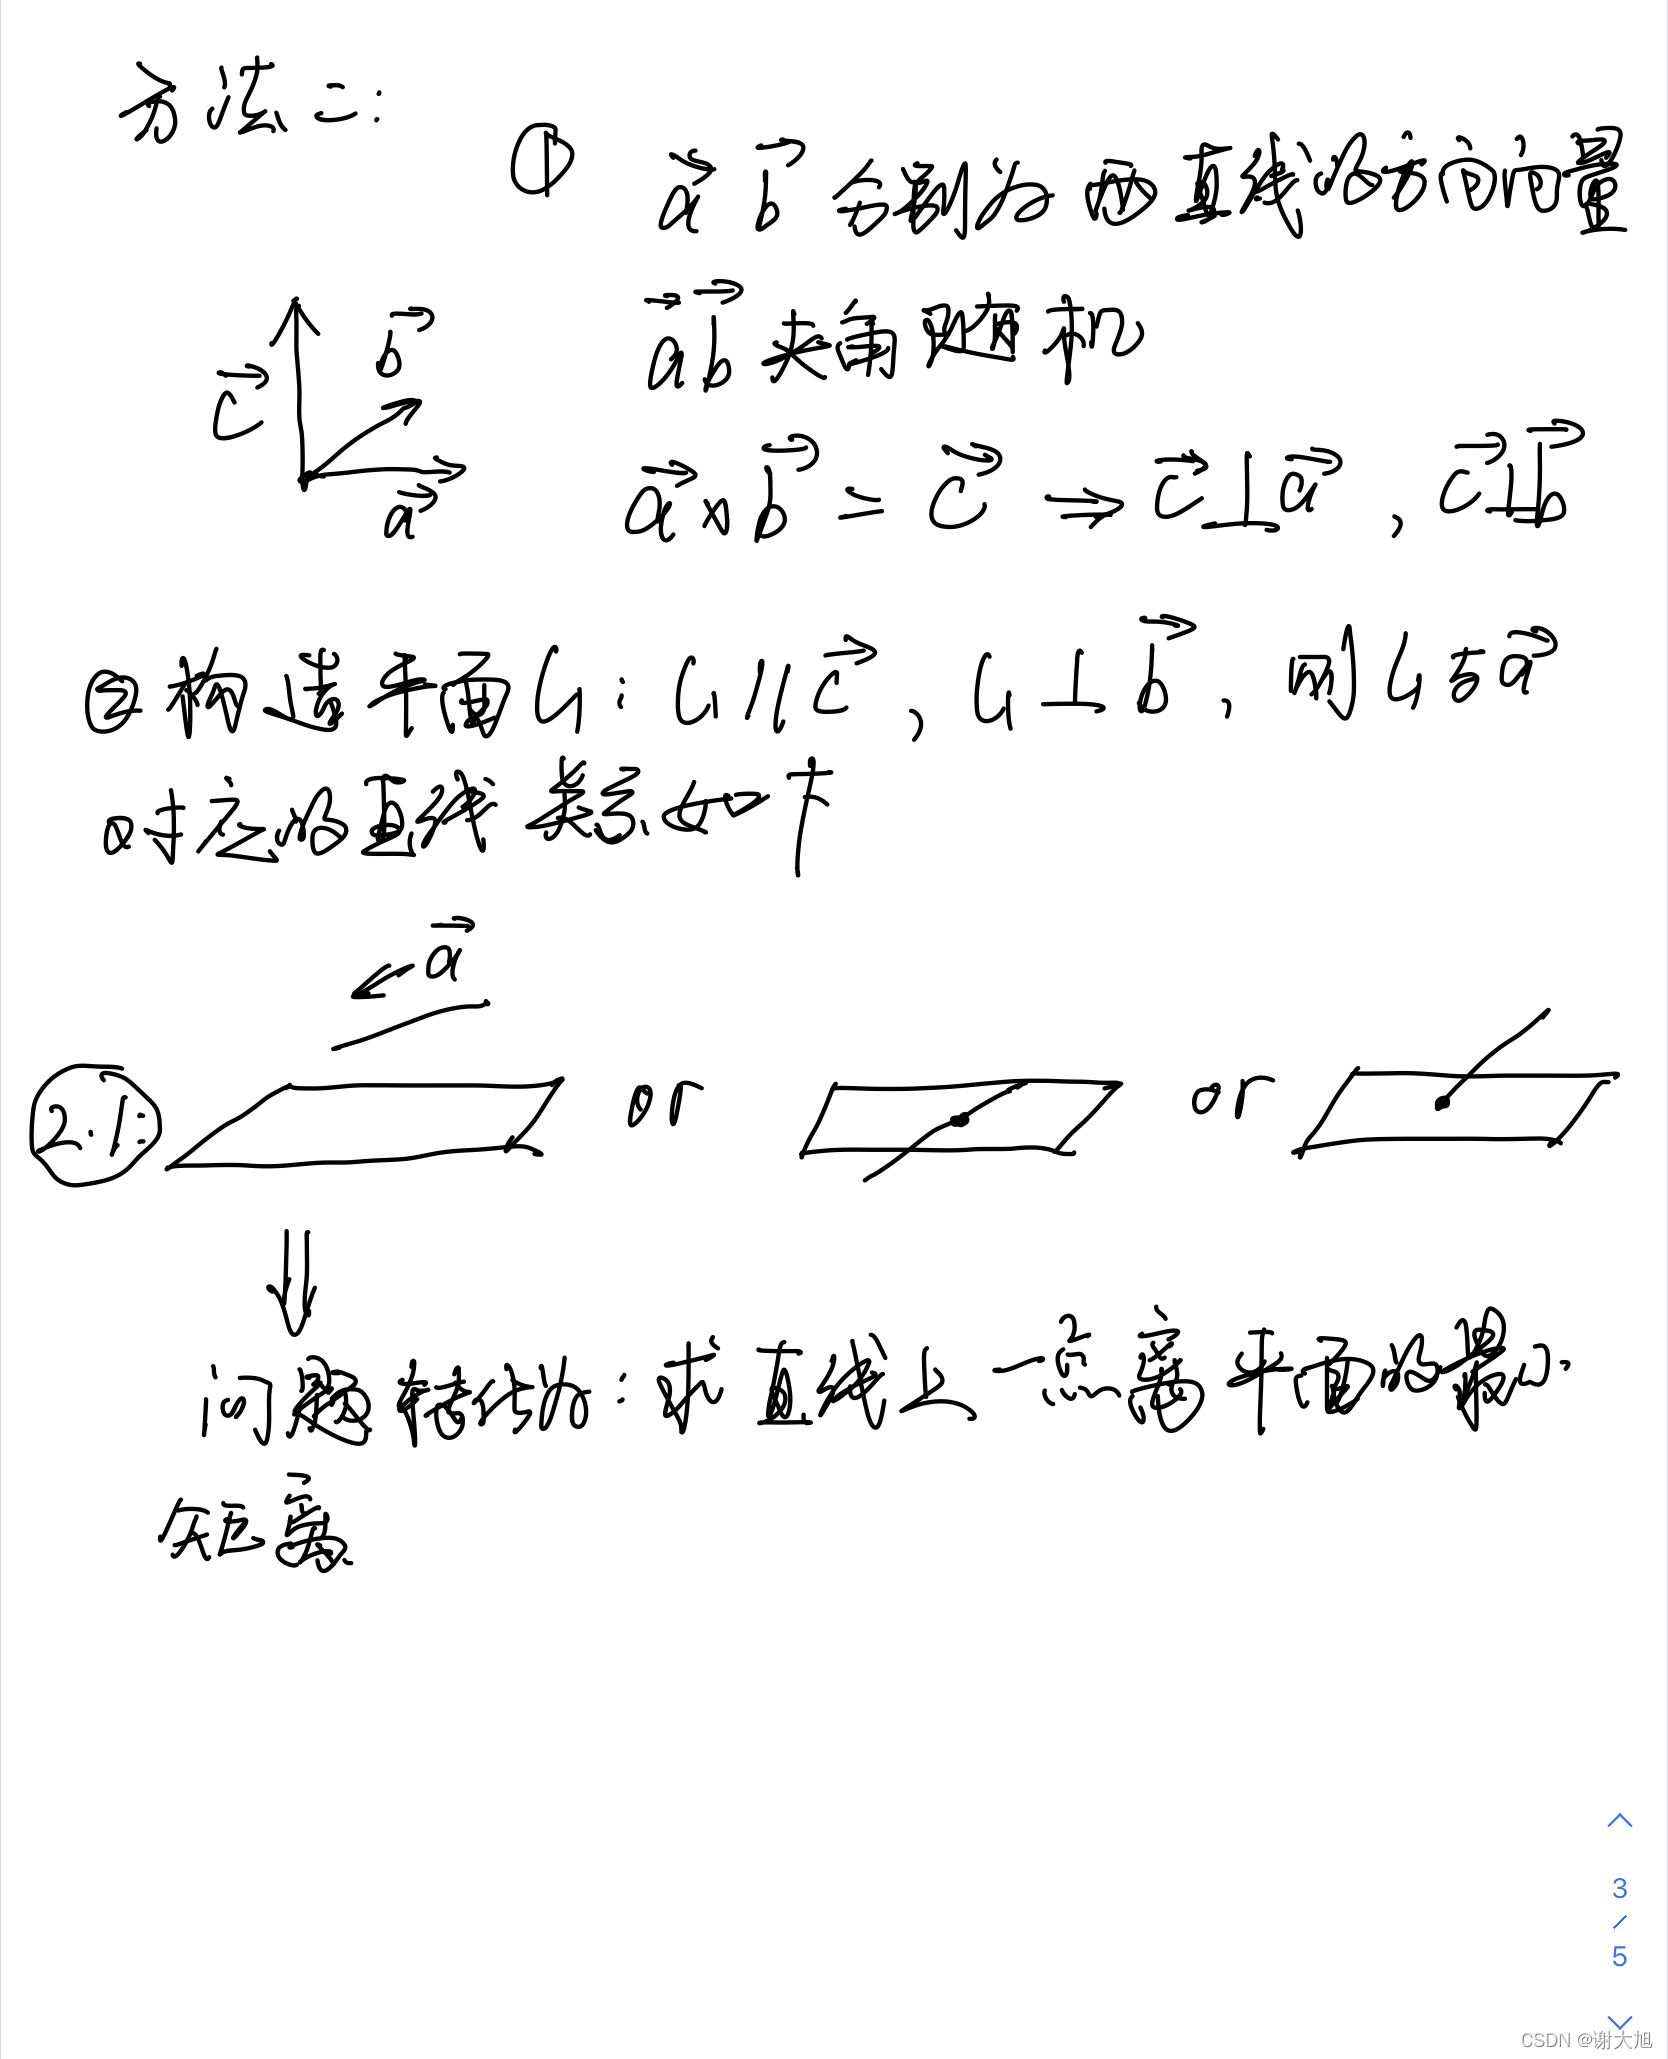 方法二:
① a⃗ b⃗ 分别为两直线的方向向量
a⃗ b⃗ 夹角随机
c⃗ b⃗ a⃗
a⃗ × b⃗ = c⃗ ⇒ c⃗ ⊥ a⃗ , c⃗ ⊥ b⃗
② 构造平面 G : G // c⃗ , G ⊥ b⃗ , 则 G 与 a⃗
对应的直线关系如下
a⃗
2.1: or or
⇓
问题转化为: 求直线上一点离平面的最小
距离
3
/
5
CSDN @谢大旭